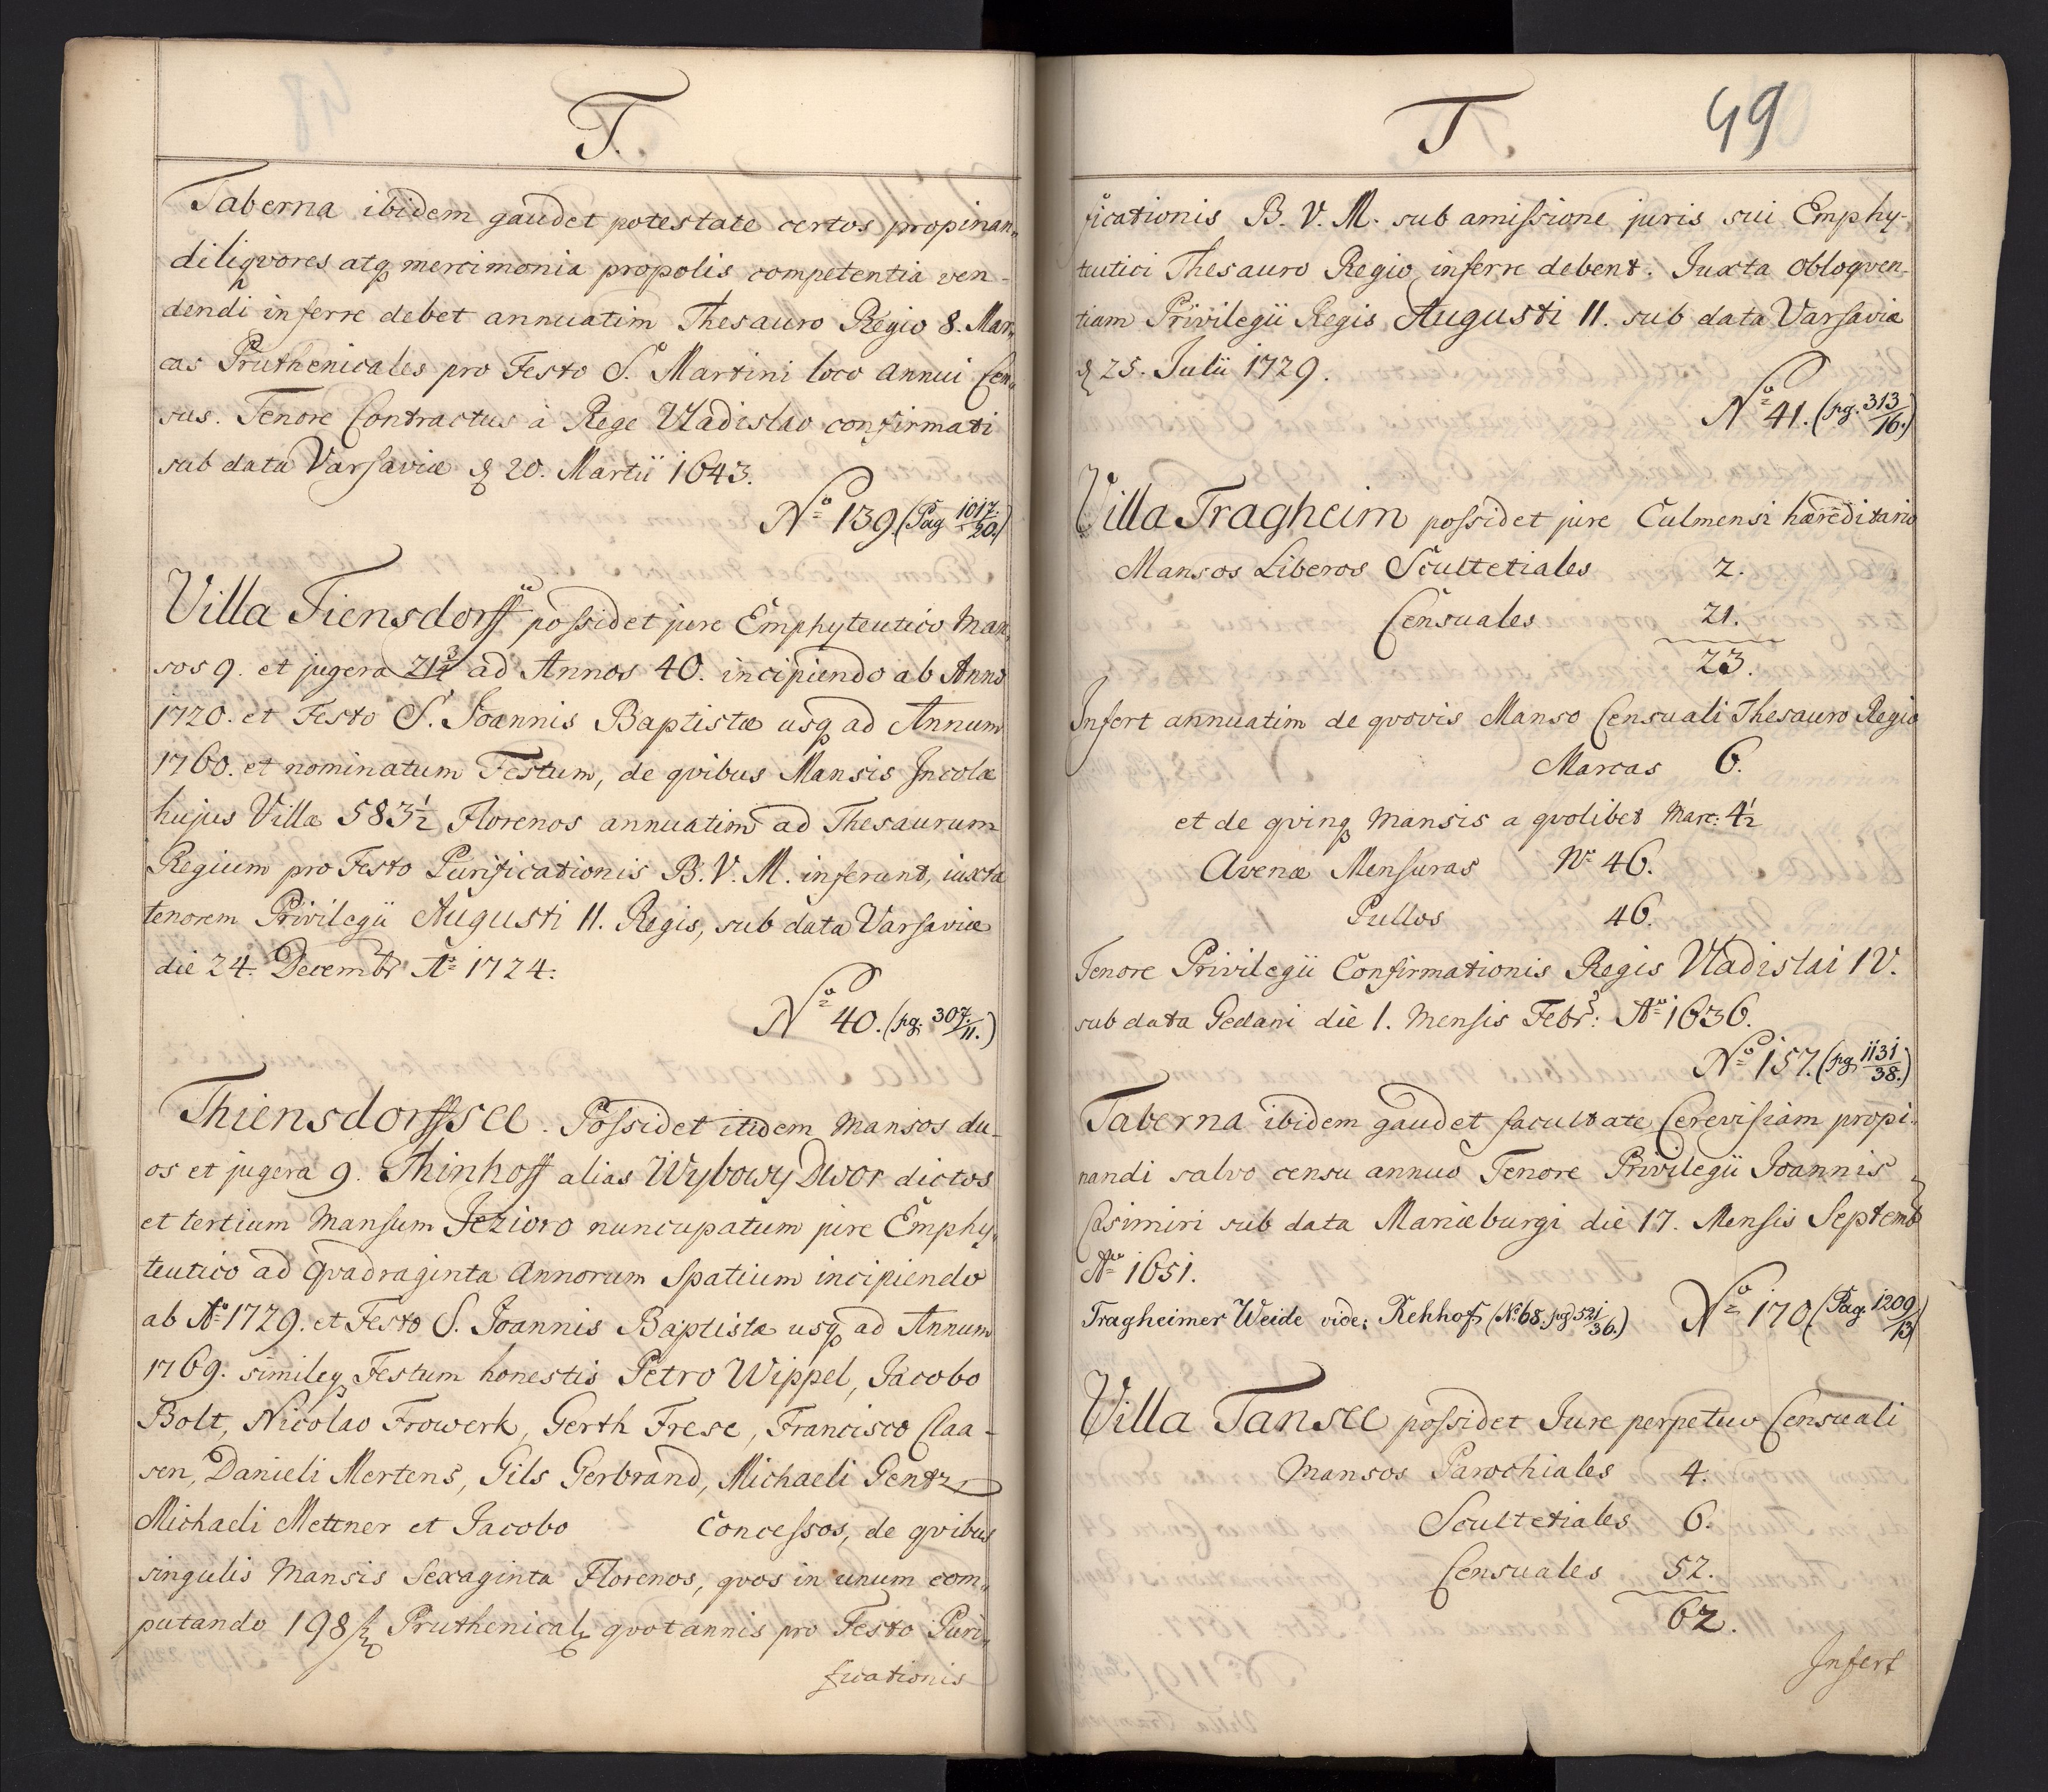 T.
Taberna ibidem gaudet potestate certos propinan„
di liqvores atq mercimonia propolis competentia ven-
dendi inferre debet annuatim Thesauro Regio 8. Mar„
cas Pruthenicales pro Festo S. Martini loco annui Cen„
sus. Tenore Contractus à Rege Vladislao confirmati
sub data Varsaviæ d 20. Martii 1643.
No 139. (Pag 1017./20.)
Villa Tiensdorff possidet jure Emphyteutico Man„
sos 9. et jugera 21 3/4 ad Annos 40. incipiendo ab Anno
1720. et Festo S. Joannis Baptistæ usq ad Annum
1760. et nominatum Festum, de qvibus Mansis Incolæ
hujus Villæ 583 1/2 Florenos annuatim ad Thesaurum
Regium pro Festo Purificationis B. V. M. inferunt, iuxta
tenorem Privilegii Augusti II. Regis, sub data Varsaviæ
die 24. Decembr Ao 1724.
No 40. (pg. 307./11.)
Thiensdorffsee. Possidet itidem Mansos du-
os et jugera 9. Thinhoff alias Wybowy Dwor dictos
et tertium Mansum Jezioro nuncupatum jure Emphy„
teutico ad Qvadraginta Annorum Spatium incipiendo
ab Ao 1729. et Festo S. Joannis Baptistæ usq ad Annum
1769. simileq Festum honestis Petro Wippel, Jacobo
Bolt, Nicolao Frowerk, Gerth Frese, Francisco Claa-
sen, Danieli Mertens, Gils Gerbrand, Michaeli Gentz
Michaeli Mettner et Jacobo Concessos, de qvibus
singulis Mansis Sexaginta Florenos, qvos in unum com„
putando 198 Pruthenical qvotannis pro Festo Puri„
ficationis
T.
49
ficationis B. V. M. sub amissione juris sui Emphy-
teutici Thesauro Regio inferre debent. Juxta obloqven-
tiam Privilegii Regis Augusti II. sub data Varsaviæ
d 25. Julii 1729.
No 41. (pg. 313/16.)
Villa Tragheim possidet jure Culmensi hæreditario
Mansos Liberos Scultetiales 2.
Censuales 21.
23.
Infert annuatim de qvovis Manso Censuali Thesauro Regio
Marcas 6.
et de qvinq Mansis a qvolibet Marc: 4 1/2
Avenæ Mensuras No 46.
Pullos 46.
Tenore Privilegii Confirmationis Regis Vladislai IV.
sub data Gedani die 1. Mensis Febr: Ao 1636.
No 157. (pg 1131/38.)
Taberna ibidem gaudet facultate Cerevisiam propi„
nandi salvo censu annuo Tenore Privilegii Joannis
Casimiri sub data Mariæburgi die 17. Mensis Septemb
Ao 1651.
Tragheimer Weide vide: Rehhof (No 68. pg 521/36.) No 170 (Pag. 1209/13)
Villa Tansee possidet Jure perpetuo Censuali
Mansos Parochiales 4.
Scultetiales 6.
Censuales 52.
62.
Infert